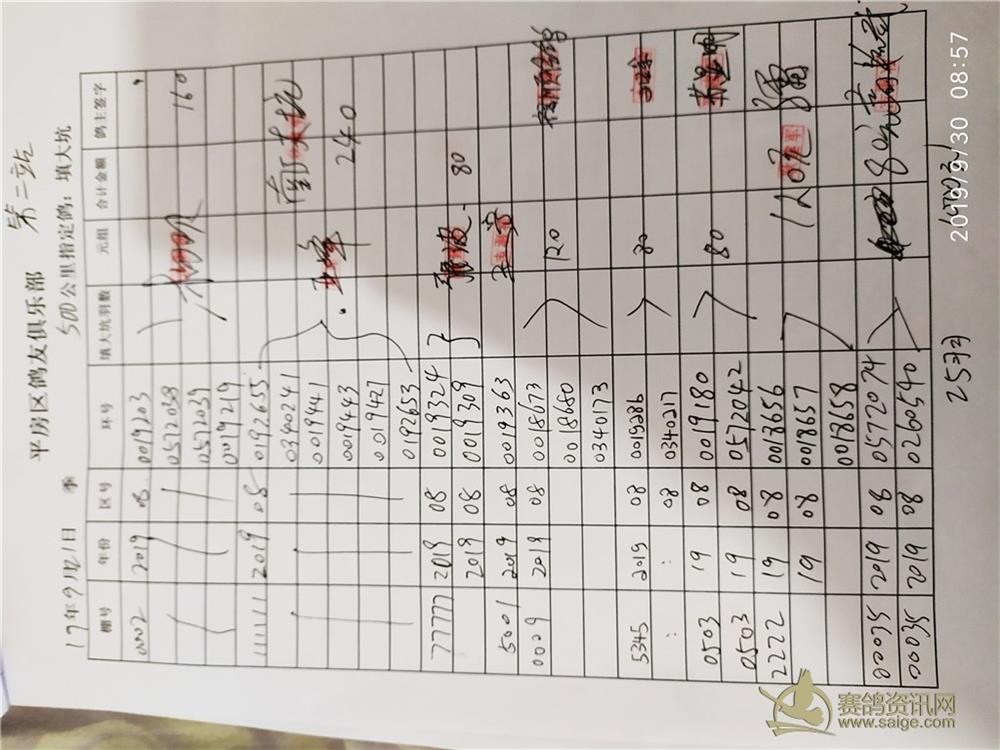 平房区鸽友俱乐部 第二站
17年9月21日 季 500公里指定鸽：填大坑
棚号 年份 区号 环号 填大坑羽数 元组 合计金额 鸽主签字
0002 2019 08 0019203
0572038 160
0572039
0019219
111111 2019 08 0192655
0340241
0019441 240
0019443
0019427
0192653
77777 2019 08 0019324 80
2019 08 0019309
5001 2019 08 0019363
0009 2019 08 0018673 120
0018680
0340173
5345 2019 08 0019286 80
: : 08 0340217
0503 19 08 0019180 80
0503 19 08 0572042
2222 19 08 0018656 120元
19 08 0018657
0018658
000035 2019 08 0572074 80元
000035 2019 08 0260590
25羽
2019/9/30 08:57
赛鸽资讯网
www.saige.com